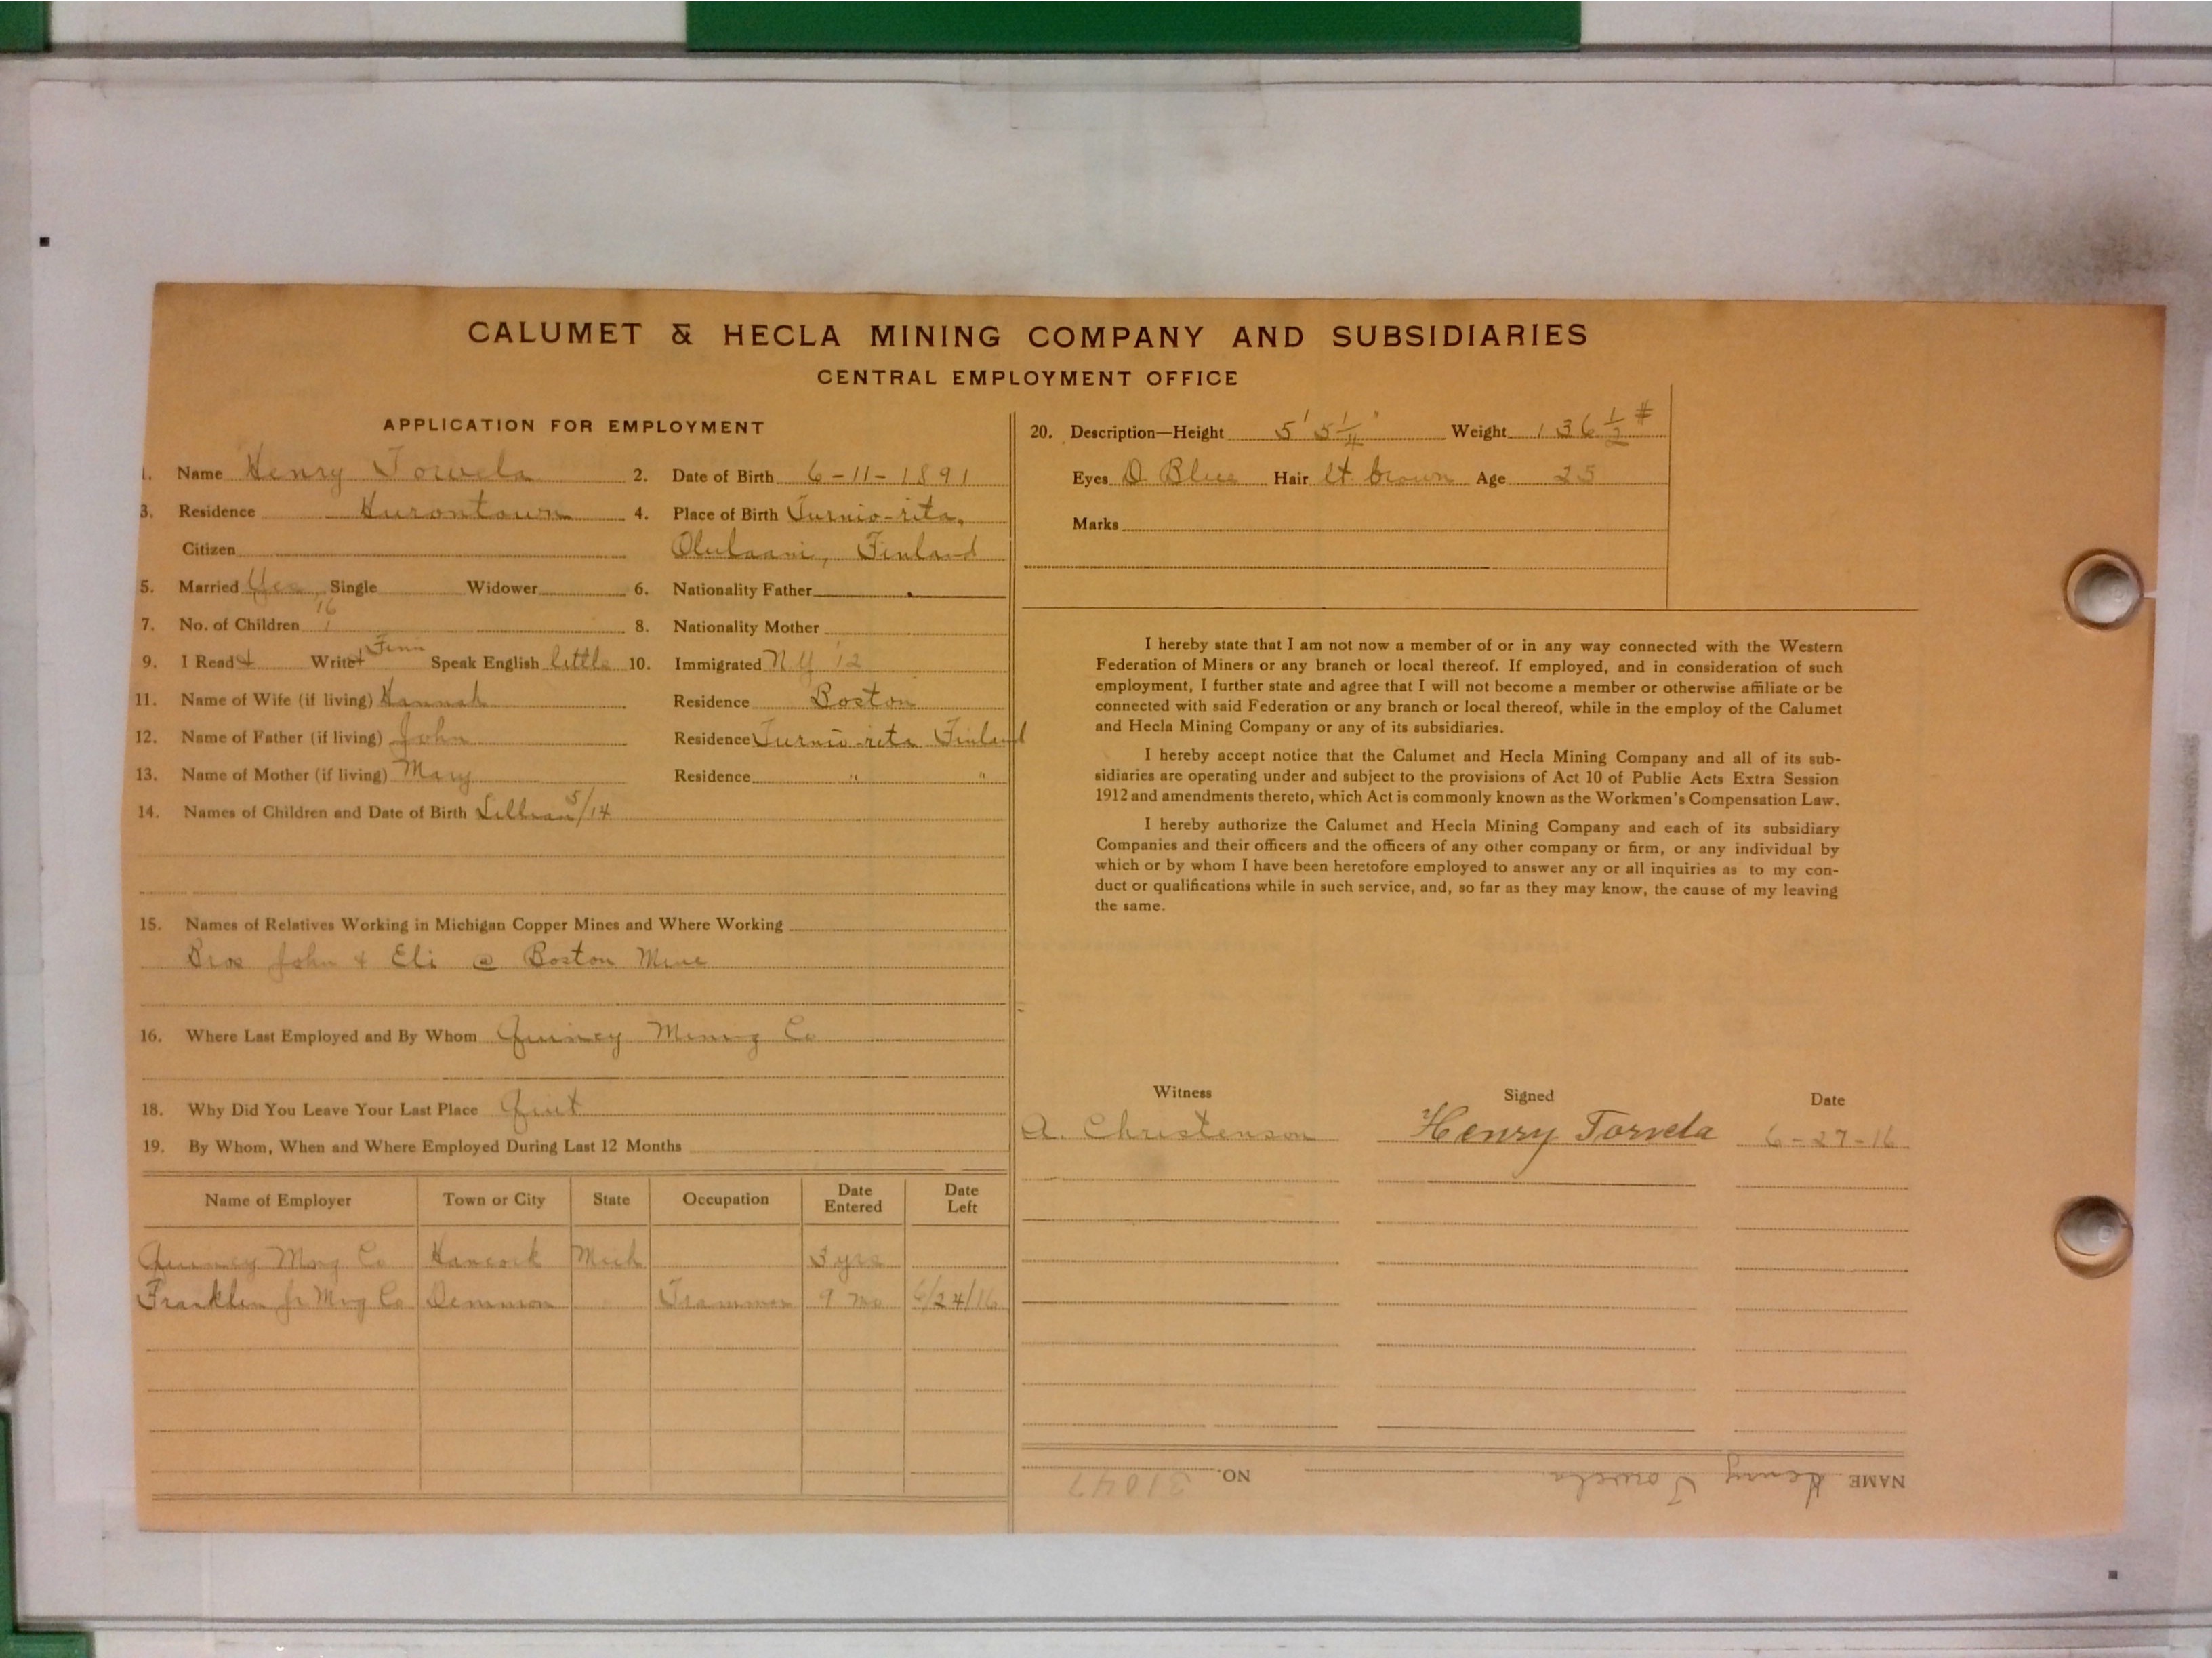 CALUMET & HECLA MINING COMPANY AND SUBSIDIARIES
CENTRAL EMPLOYMENT OFFICE
APPLICATION FOR EMPLOYMENT
1. Name Henry Torvela 2. Date of Birth 6-11-1891
3. Residence Hurontown 4. Place of Birth Turnio-rita,
Citizen Olulaani, Finland
5. Married Yes Single Widower 6. Nationality Father
16
7. No. of Children 1 8. Nationality Mother
9. I Read + Write + Finn Speak English little 10. Immigrated NY '12
11. Name of Wife (if living) Hannah Residence Boston
12. Name of Father (if living) John Residence Turnio-rita Finland
13. Name of Mother (if living) Mary Residence " "
14. Names of Children and Date of Birth Lillian 5/14
15. Names of Relatives Working in Michigan Copper Mines and Where Working
Bros John & Eli @ Boston Mine
16. Where Last Employed and By Whom Quincy Mining Co
18. Why Did You Leave Your Last Place Quit
19. By Whom, When and Where Employed During Last 12 Months
Name of Employer Town or City State Occupation Date Entered Date Left
Quincy Mng Co Hancock Mich 3 yrs
Franklin Jr Mng Co Demmon Trammer 9 mo 6/24/16
20. Description—Height 5' 5 1/4" Weight 136 1/2 #
Eyes D Blue Hair lt brown Age 25
Marks
I hereby state that I am not now a member of or in any way connected with the Western
Federation of Miners or any branch or local thereof. If employed, and in consideration of such
employment, I further state and agree that I will not become a member or otherwise affiliate or be
connected with said Federation or any branch or local thereof, while in the employ of the Calumet
and Hecla Mining Company or any of its subsidiaries.
I hereby accept notice that the Calumet and Hecla Mining Company and all of its sub-
sidiaries are operating under and subject to the provisions of Act 10 of Public Acts Extra Session
1912 and amendments thereto, which Act is commonly known as the Workmen's Compensation Law.
I hereby authorize the Calumet and Hecla Mining Company and each of its subsidiary
Companies and their officers and the officers of any other company or firm, or any individual by
which or by whom I have been heretofore employed to answer any or all inquiries as to my con-
duct or qualifications while in such service, and, so far as they may know, the cause of my leaving
the same.
Witness Signed Date
A. Christenson Henry Torvela 6-27-16
NAME Henry Torvela NO. 31047